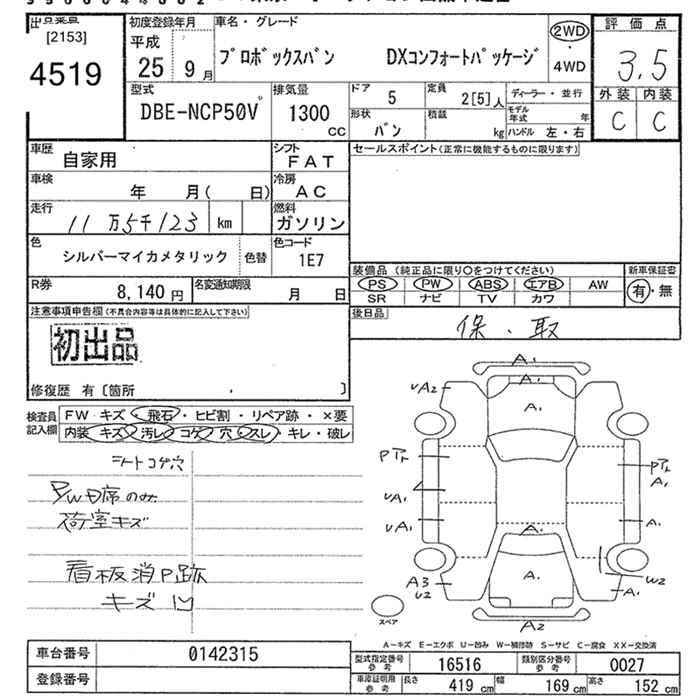 出品票
[2153]
4519
初度登録年月
平成
25 9月
車名・グレード
プロボックスバン DXコンフォートパッケージ
2WD
・
4WD
評価点
3.5
外装 内装
C C
型式
DBE-NCP50V
排気量
1300
CC
ドア
5
定員
2[5]人
ディーラー・並行
形状
バン
積載
kg
モデル年式 年
ハンドル 左・右
車歴
自家用
シフト
FAT
セールスポイント(正常に機能するものに限ります)
車検
年 月( 日)
冷房
AC
走行
11万5千123 km
燃料
ガソリン
色
シルバーマイカメタリック
色替
色コード
1E7
装備品 (純正品に限り○をつけてください)
新車保証書
PS PW ABS エアB AW
有・無
SR ナビ TV カワ
R券
8,140円
名変通知期限
月 日
後日品
保、取
注意事項申告欄(不具合内容等は具体的に記入して下さい)
初出品
修復歴 有〔箇所 〕
検査員記入欄
FW キズ・飛石・ヒビ割・リペア跡・×要
内装 キズ 汚レ コゲ 穴・スレ・キレ・破レ
シートコゲ穴
PWD席のみ
荷室キズ
看板消P跡
キズ凹
A1
UA2
A1
A1
Pアト
Pアト
A1
UA1
UA1
A1
A1
A1
A3
U2
W2
A1
A2
スペア
A―キズ E―エクボ U―凹み W―補修跡 S―サビ C―腐食 XX―交換済
車台番号
0142315
登録番号
型式指定番号
参考
16516
類別区分番号
参考
0027
車庫証明用
参考
長さ
419 cm
幅
169 cm
高さ
152 cm